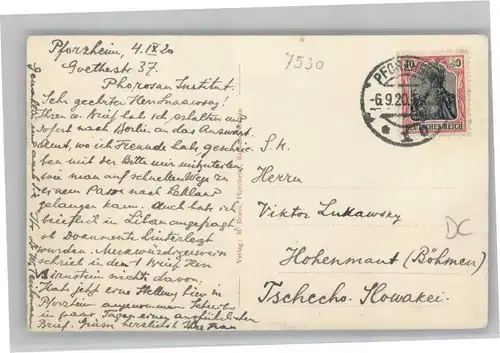 Pforzheim, 4.IX 20
Goethestr 37.
Phorosan Institut.
Sehr geehrter Herr
Ihren w. Brief hab ich erhalten und
sofort nach Berlin an das Auswärt.
amt, wo ich Freunde hab, geschrie-
ben mit der Bitte mir mitzuteilen
wie man auf schnellem Wege zu
einem Passe nach
gelangen kann. Auch hab ich
brieflich in Libau angefragt
ob Dokumente hinterlegt
wurden. Merkwürdigerweise
schrieb in dem Brief Herr
Bernstein nichts davon.
Hab jetzt eine Stellung hier in
Pforzheim angenommen Schreibe
in paar Tagen einen ausführlichen
Brief. Grüsse herzlichst Ihre Frau
7530
40 40
DEUTSCHES REICH
-6.9.20.
S.H.
Herrn
Viktor Lukawsky
Hohenmaut (Böhmen)
Tschecho-Slowakei.
DC
Verlag: